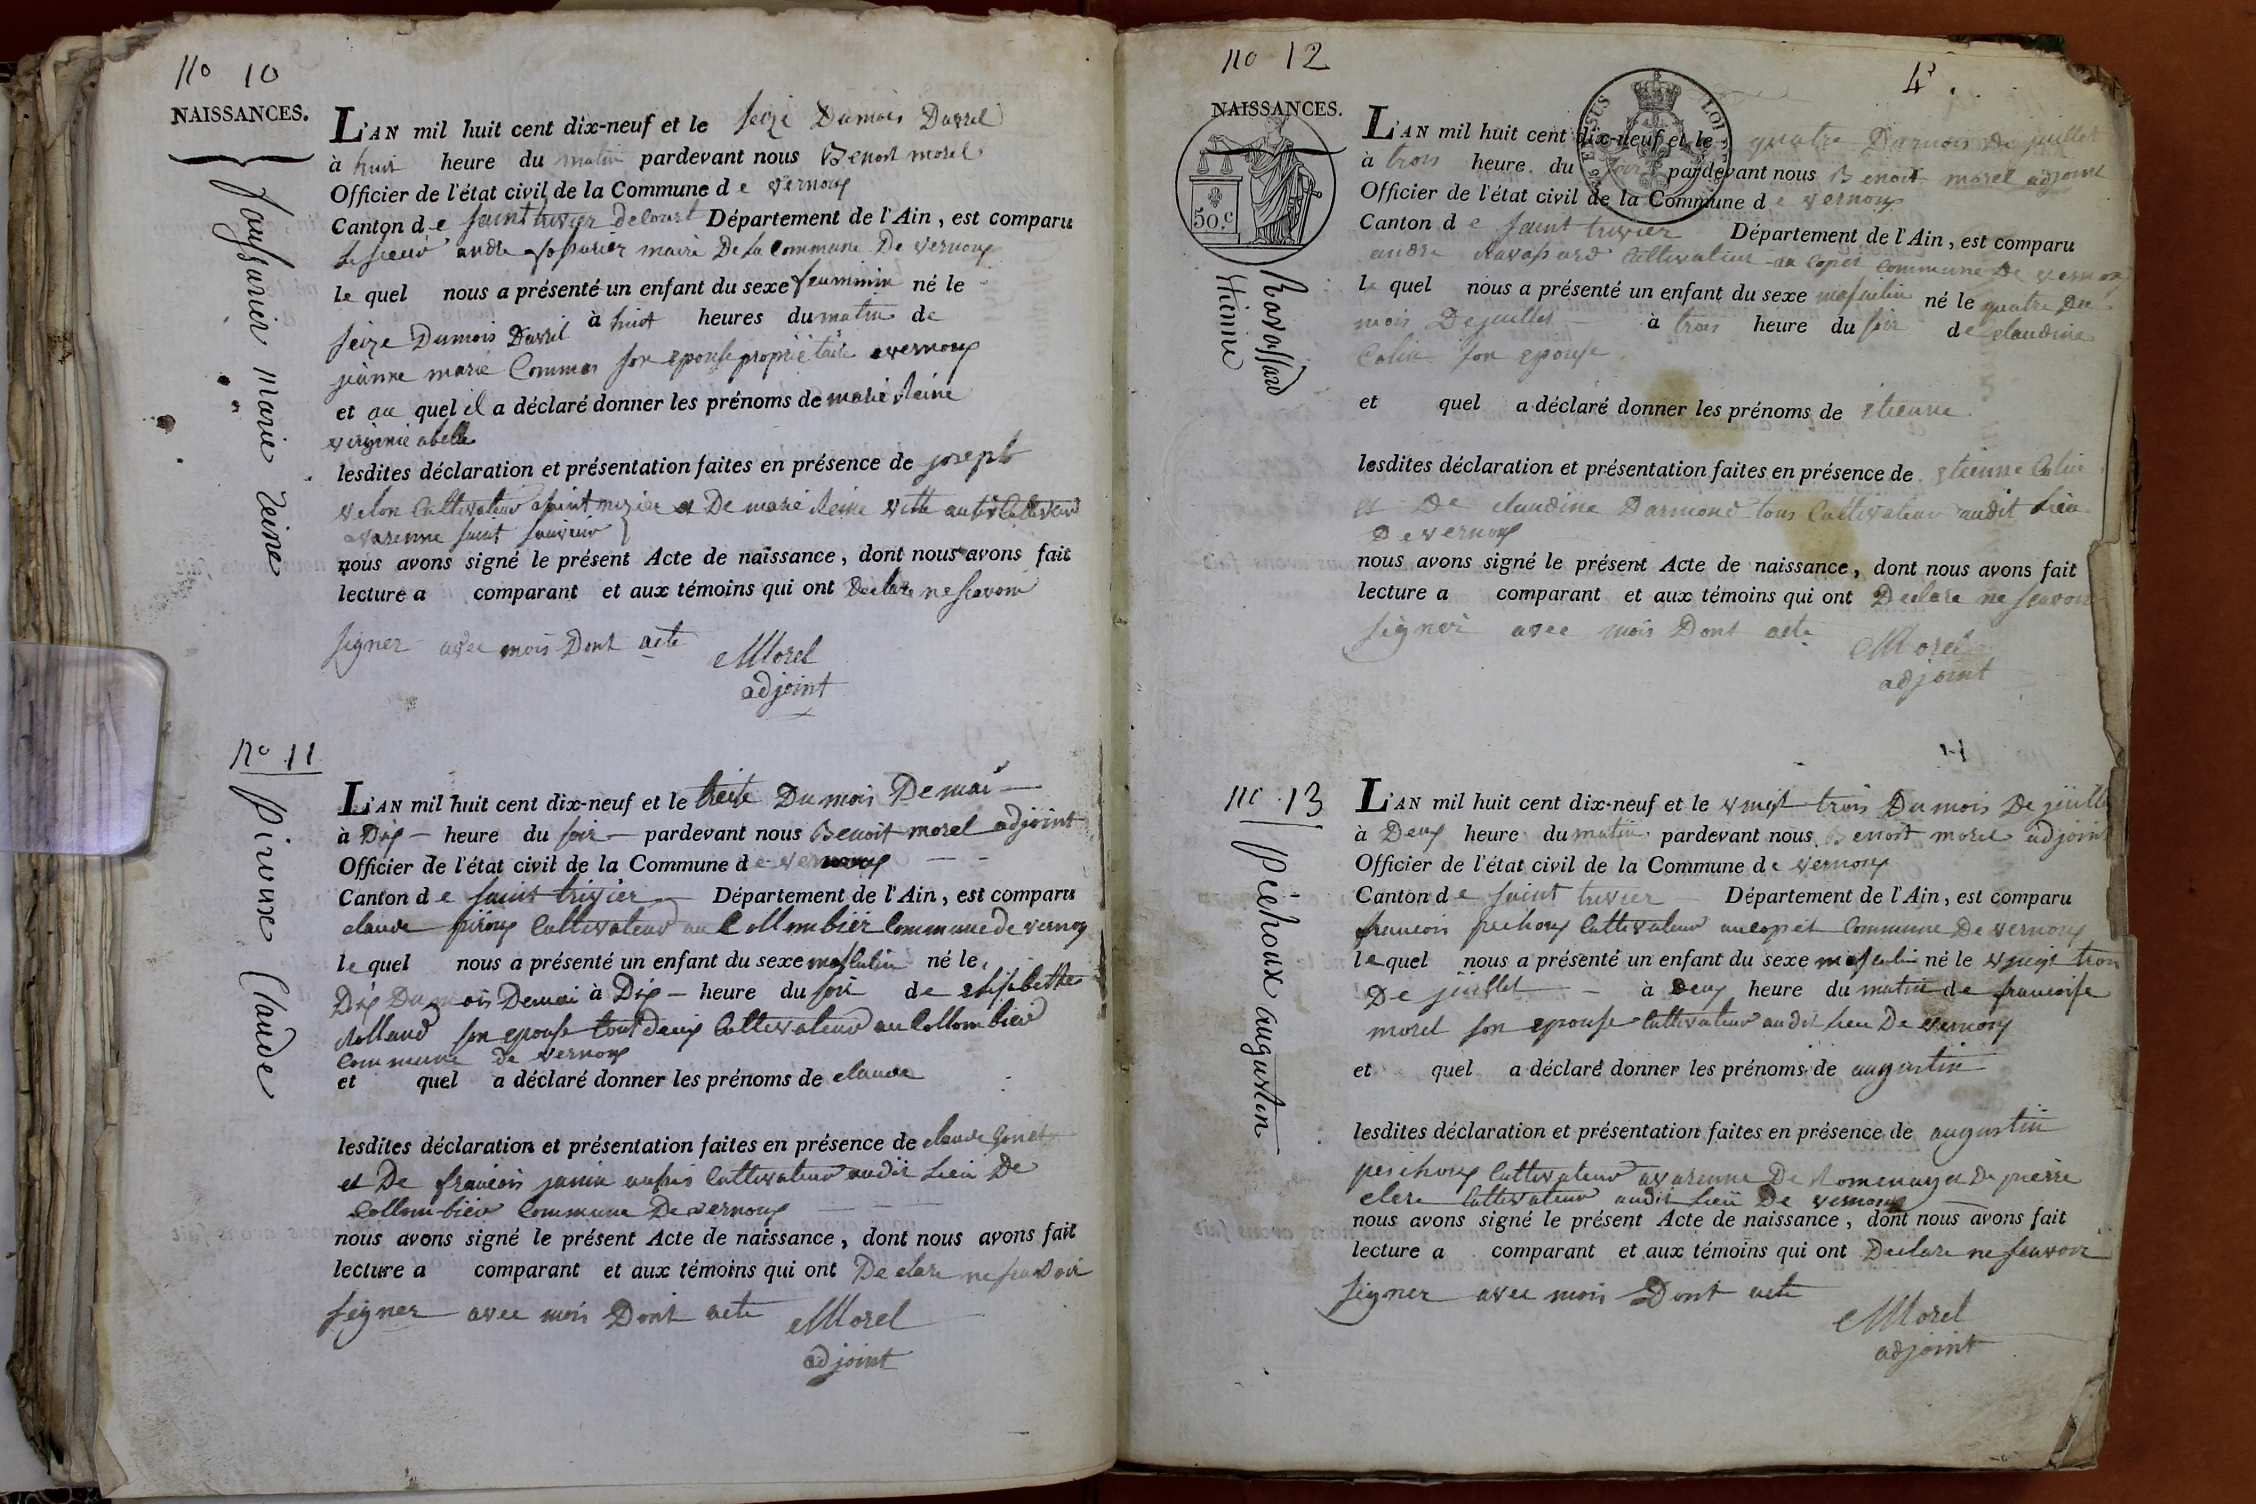 no 10
NAISSANCES.
Marie Reine
L'AN mil huit cent dix-neuf et le seize Dumois Davril
à huit heure du matin pardevant nous Benoit morel
Officier de l'état civil de la Commune de vernoux
Canton de saint trivier decourt Département de l'Ain, est comparu
le sieur andre maire De la commune De vernoux
le quel nous a présenté un enfant du sexe feuminin né le
seize Dumois Davril à huit heures du matin de
jeanne marie Commas son epouse proprietaire a vernoux
et au quel il a déclaré donner les prénoms de marie Reine
virginie abelle
lesdites déclaration et présentation faites en présence de joseph
velon Cultivateur a saint et De marie Reine
a varenne saint sauveur
nous avons signé le présent Acte de naissance, dont nous avons fait
lecture a comparant et aux témoins qui ont Declare ne scavoir
signer avec mois Dont acte
Morel
adjoint
no 11
Piroux Claude
L'AN mil huit cent dix-neuf et le Dumois Demai
à Dix heure du soir pardevant nous Benoit morel adjoint
Officier de l'état civil de la Commune de vernoux
Canton de saint trivier Département de l'Ain, est comparu
claude piroux Cultivateur au Collombier Commune de vernoux
le quel nous a présenté un enfant du sexe masculin né le
Dix Dumois Demai à Dix heure du soir de
Rolland son epouse tout deux Cultivateur au Collombier
Commune de vernoux
et quel a déclaré donner les prénoms de claude
lesdites déclaration et présentation faites en présence de claude
et De francois janin Cultivateur audit Lieu De
Collombier Commune De vernoux
nous avons signé le présent Acte de naissance, dont nous avons fait
lecture a comparant et aux témoins qui ont Declare ne scavoir
signer avec mois Dont acte
Morel
adjoint
no 12
4
NAISSANCES.
50.c
LOI
Ravassard
Etienne
L'AN mil huit cent dix-neuf et le quatre Dumois De juillet
à trois heure du soir pardevant nous Benoit morel adjoint
Officier de l'état civil de la Commune de vernoux
Canton de saint trivier Département de l'Ain, est comparu
andre Ravassard Cultivateur au copet commune De vernoux
le quel nous a présenté un enfant du sexe masculin né le quatre Du
mois De juillet à trois heure du soir de claudine
Colin son epouse
et quel a déclaré donner les prénoms de etienne
lesdites déclaration et présentation faites en présence de etienne Colin
et De claudine Darmond tous Cultivateur audit Lieu
De vernoux
nous avons signé le présent Acte de naissance, dont nous avons fait
lecture a comparant et aux témoins qui ont Declare ne scavoir
signer avec mois Dont acte
Morel
adjoint
no 13
Pechoux augustin
L'AN mil huit cent dix-neuf et le vingt trois Dumois De juillet
à Deux heure du matin pardevant nous Benoit morel adjoint
Officier de l'état civil de la Commune de vernoux
Canton de saint trivier Département de l'Ain, est comparu
francois pechoux Cultivateur au copet Commune De vernoux
le quel nous a présenté un enfant du sexe masculin né le vingt trois
De juillet à Deux heure du matin de francoise
morel son epouse Cultivateur audit Lieu De vernoux
et quel a déclaré donner les prénoms de augustin
lesdites déclaration et présentation faites en présence de augustin
pechoux Cultivateur a varenne De Romenay et De pierre
clere Cultivateur audit Lieu De vernoux
nous avons signé le présent Acte de naissance, dont nous avons fait
lecture a comparant et aux témoins qui ont Declare ne scavoir
signer avec mois Dont acte
Morel
adjoint